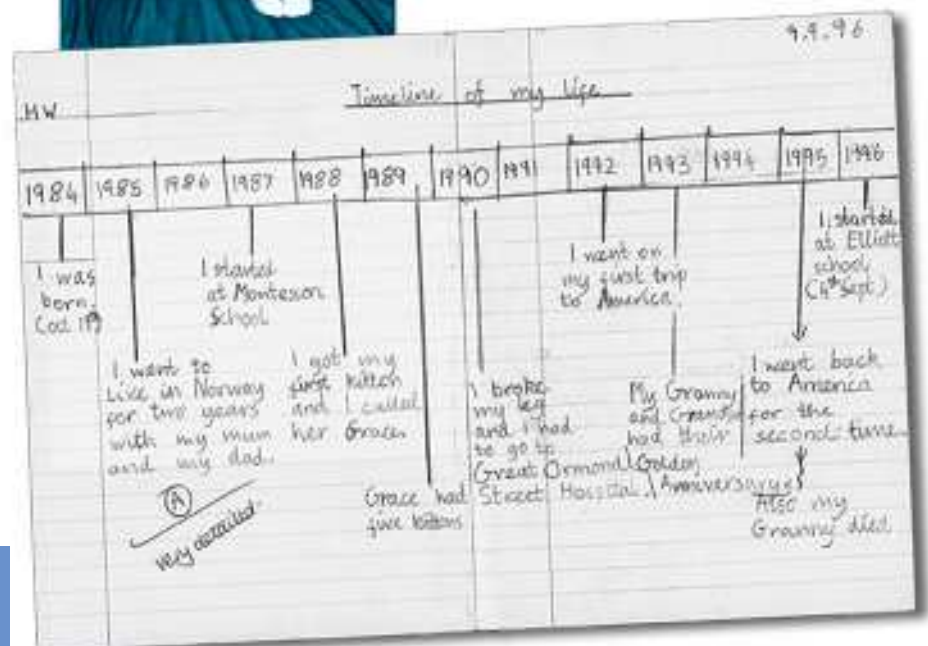 9.9.96
HW
Timeline of my life
1984 1985 1986 1987 1988 1989 1990 1991 1992 1993 1994 1995 1996
I was
born.
(Oct 11th)
I went to
Live in Norway
for two years
with my mum
and my dad.
I started
at Montesori
School
I got my
first kitten
and I called
her Grace.
Grace had
five kittens
I broke
my leg
and I had
to go to
Great Ormond
Street Hospital
I went on
my first trip
to America.
My Granny
and
had their
Golden
Anniversary
I went back
to America
for the
second time.
Also my
Granny died
I started
at Elliott
school
(4th Sept.)
A
very detailed